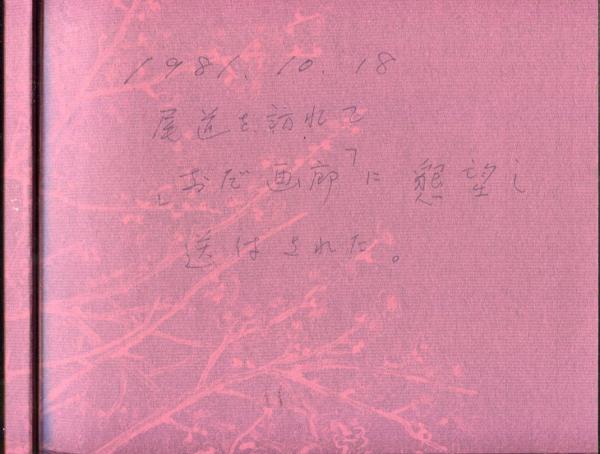 1981.10.18
尾道を訪れて
「おだ画廊」に懇望し
送はされた。